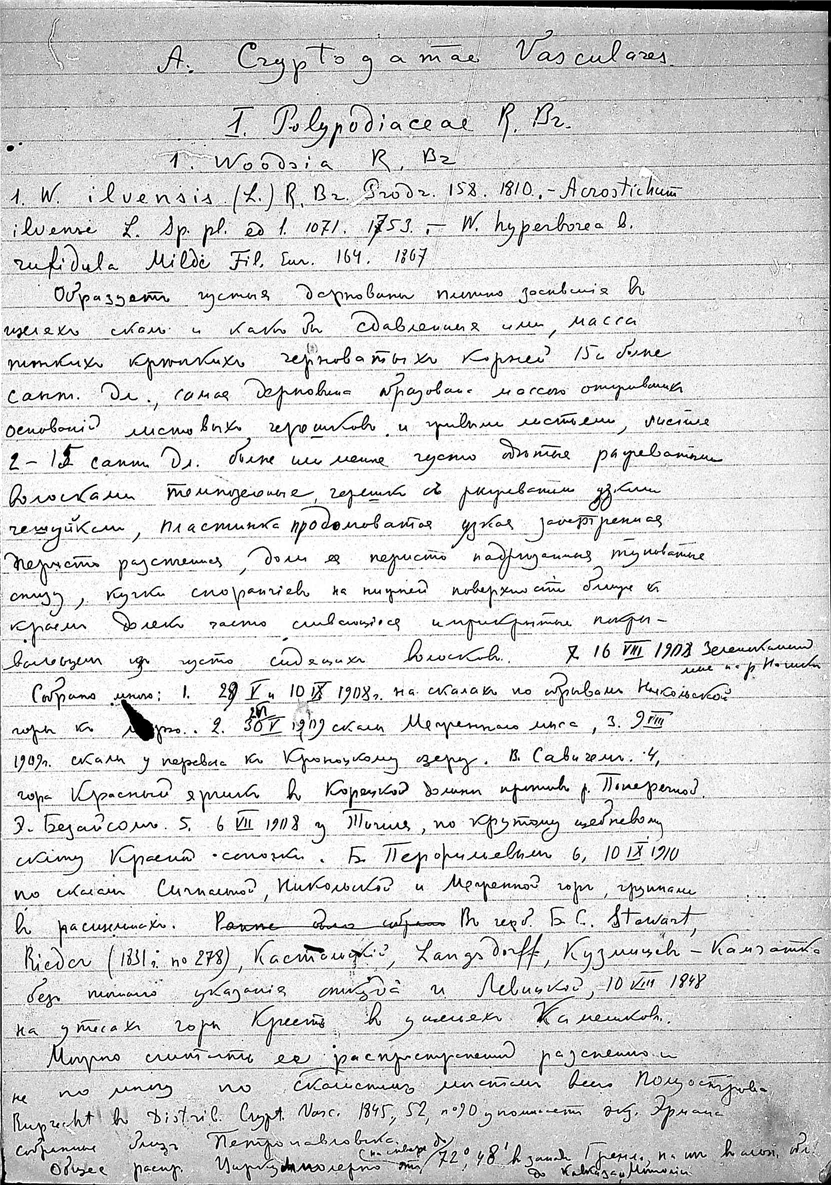 A. Cryptogamae Vasculares.
I. Polypodiaceae R. Br.
1. Woodsia R. Br
1. W. ilvensis (L.) R. Br. Prodr. 158. 1810. - Acrostichum
ilvense L. Sp. pl. ed 1. 1071. 1753. - W. hyperborea b.
rufidula Milde Fil. Eur. 164. 1867
Образуетъ густыя дерновины плотно засѣвшія въ
щеляхъ скалъ и какъ бы сдавленныя ими, масса
тонкихъ крѣпкихъ черноватыхъ корней 15 и болѣе
сант. дл., самая дерновина образована массою отмершихъ
основаній листовыхъ черешковъ и живыми листьями, листья
2-15 сант. дл. болѣе или менѣе густо одѣтые рыжеватыми
волосками темнозеленые, черешки съ рыжеватыми узкими
чешуйками, пластинка продолговатая узкая заостренная
перисто разсѣченная, доли ея перисто надрѣзанныя туповатые
снизу, кучки спорангіевъ на нижней поверхности ближе къ
краямъ долекъ часто сливающіеся и прикрытые покры-
вальцемъ изъ густо сидящихъ волосковъ. 7. 16 VIII 1908
Собрано мною: 1. 29 V и 10 IX 1908 г. на скалахъ по обрывамъ Никольской
горы къ 2. 30 V 1909 скалы маяка, 3. 9 VIII
1909 г. скалы у перевала къ Кроноцкому озеру. В. Савичемъ. 4,
гора Красный ярчикъ въ Корецкой долинѣ противъ р. Поперечной.
Э. Безайсомъ. 5. 6 VII 1908 у по крутому щебневому
скату Красной сопки. Б. Перфильевымъ 6, 10 IX 1910
по скаламъ Сигнальной, Никольской и горъ, группами
въ расщелинахъ. Въ герб. Б. С. Stewart,
Rieder (1831 г. no 278), Langsdorff, Кузмищевъ - Камчатка
безъ точнаго указанія откуда и Левицкій, 10 VIII 1848
на утесахъ горы Крестъ въ Камешковъ.
Можно считать ее распространенной разсѣянно и
не по многу по скалистымъ мѣстамъ всего Полуострова.
Ruprecht въ Distrib. Crypt. Vasc. 1845, 52, no 90 упоминаетъ экз. Эрмана
собранные близъ Петропавловска.
Общее распр. Циркумполярно 72°, 48' въ запад. Гренл.,
до Кавказа, Монголіи